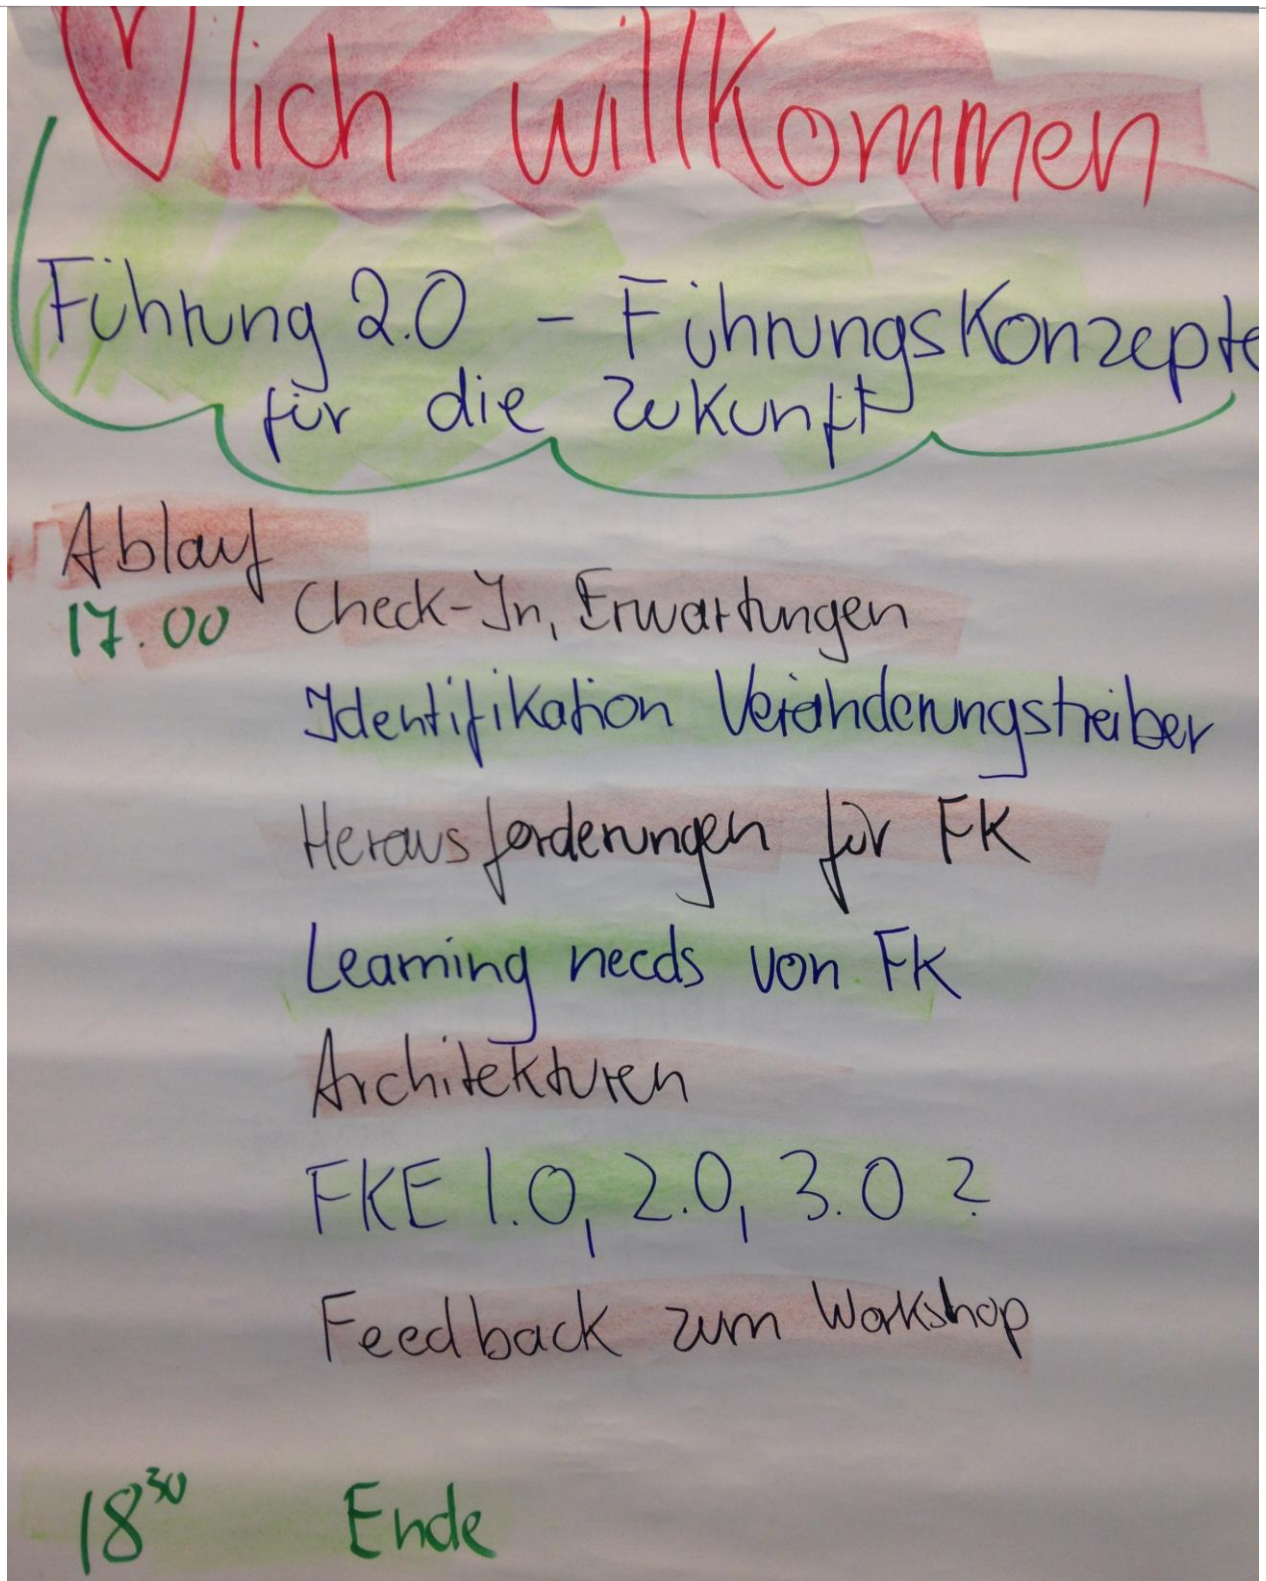 ♥lich willkommen
Führung 2.0 - Führungskonzepte
für die Zukunft
Ablauf
17.00 Check-In, Erwartungen
Identifikation Veränderungstreiber
Herausforderungen für FK
Learning needs von FK
Architekturen
FKE 1.0, 2.0, 3.0 ?
Feedback zum Workshop
18³⁰ Ende